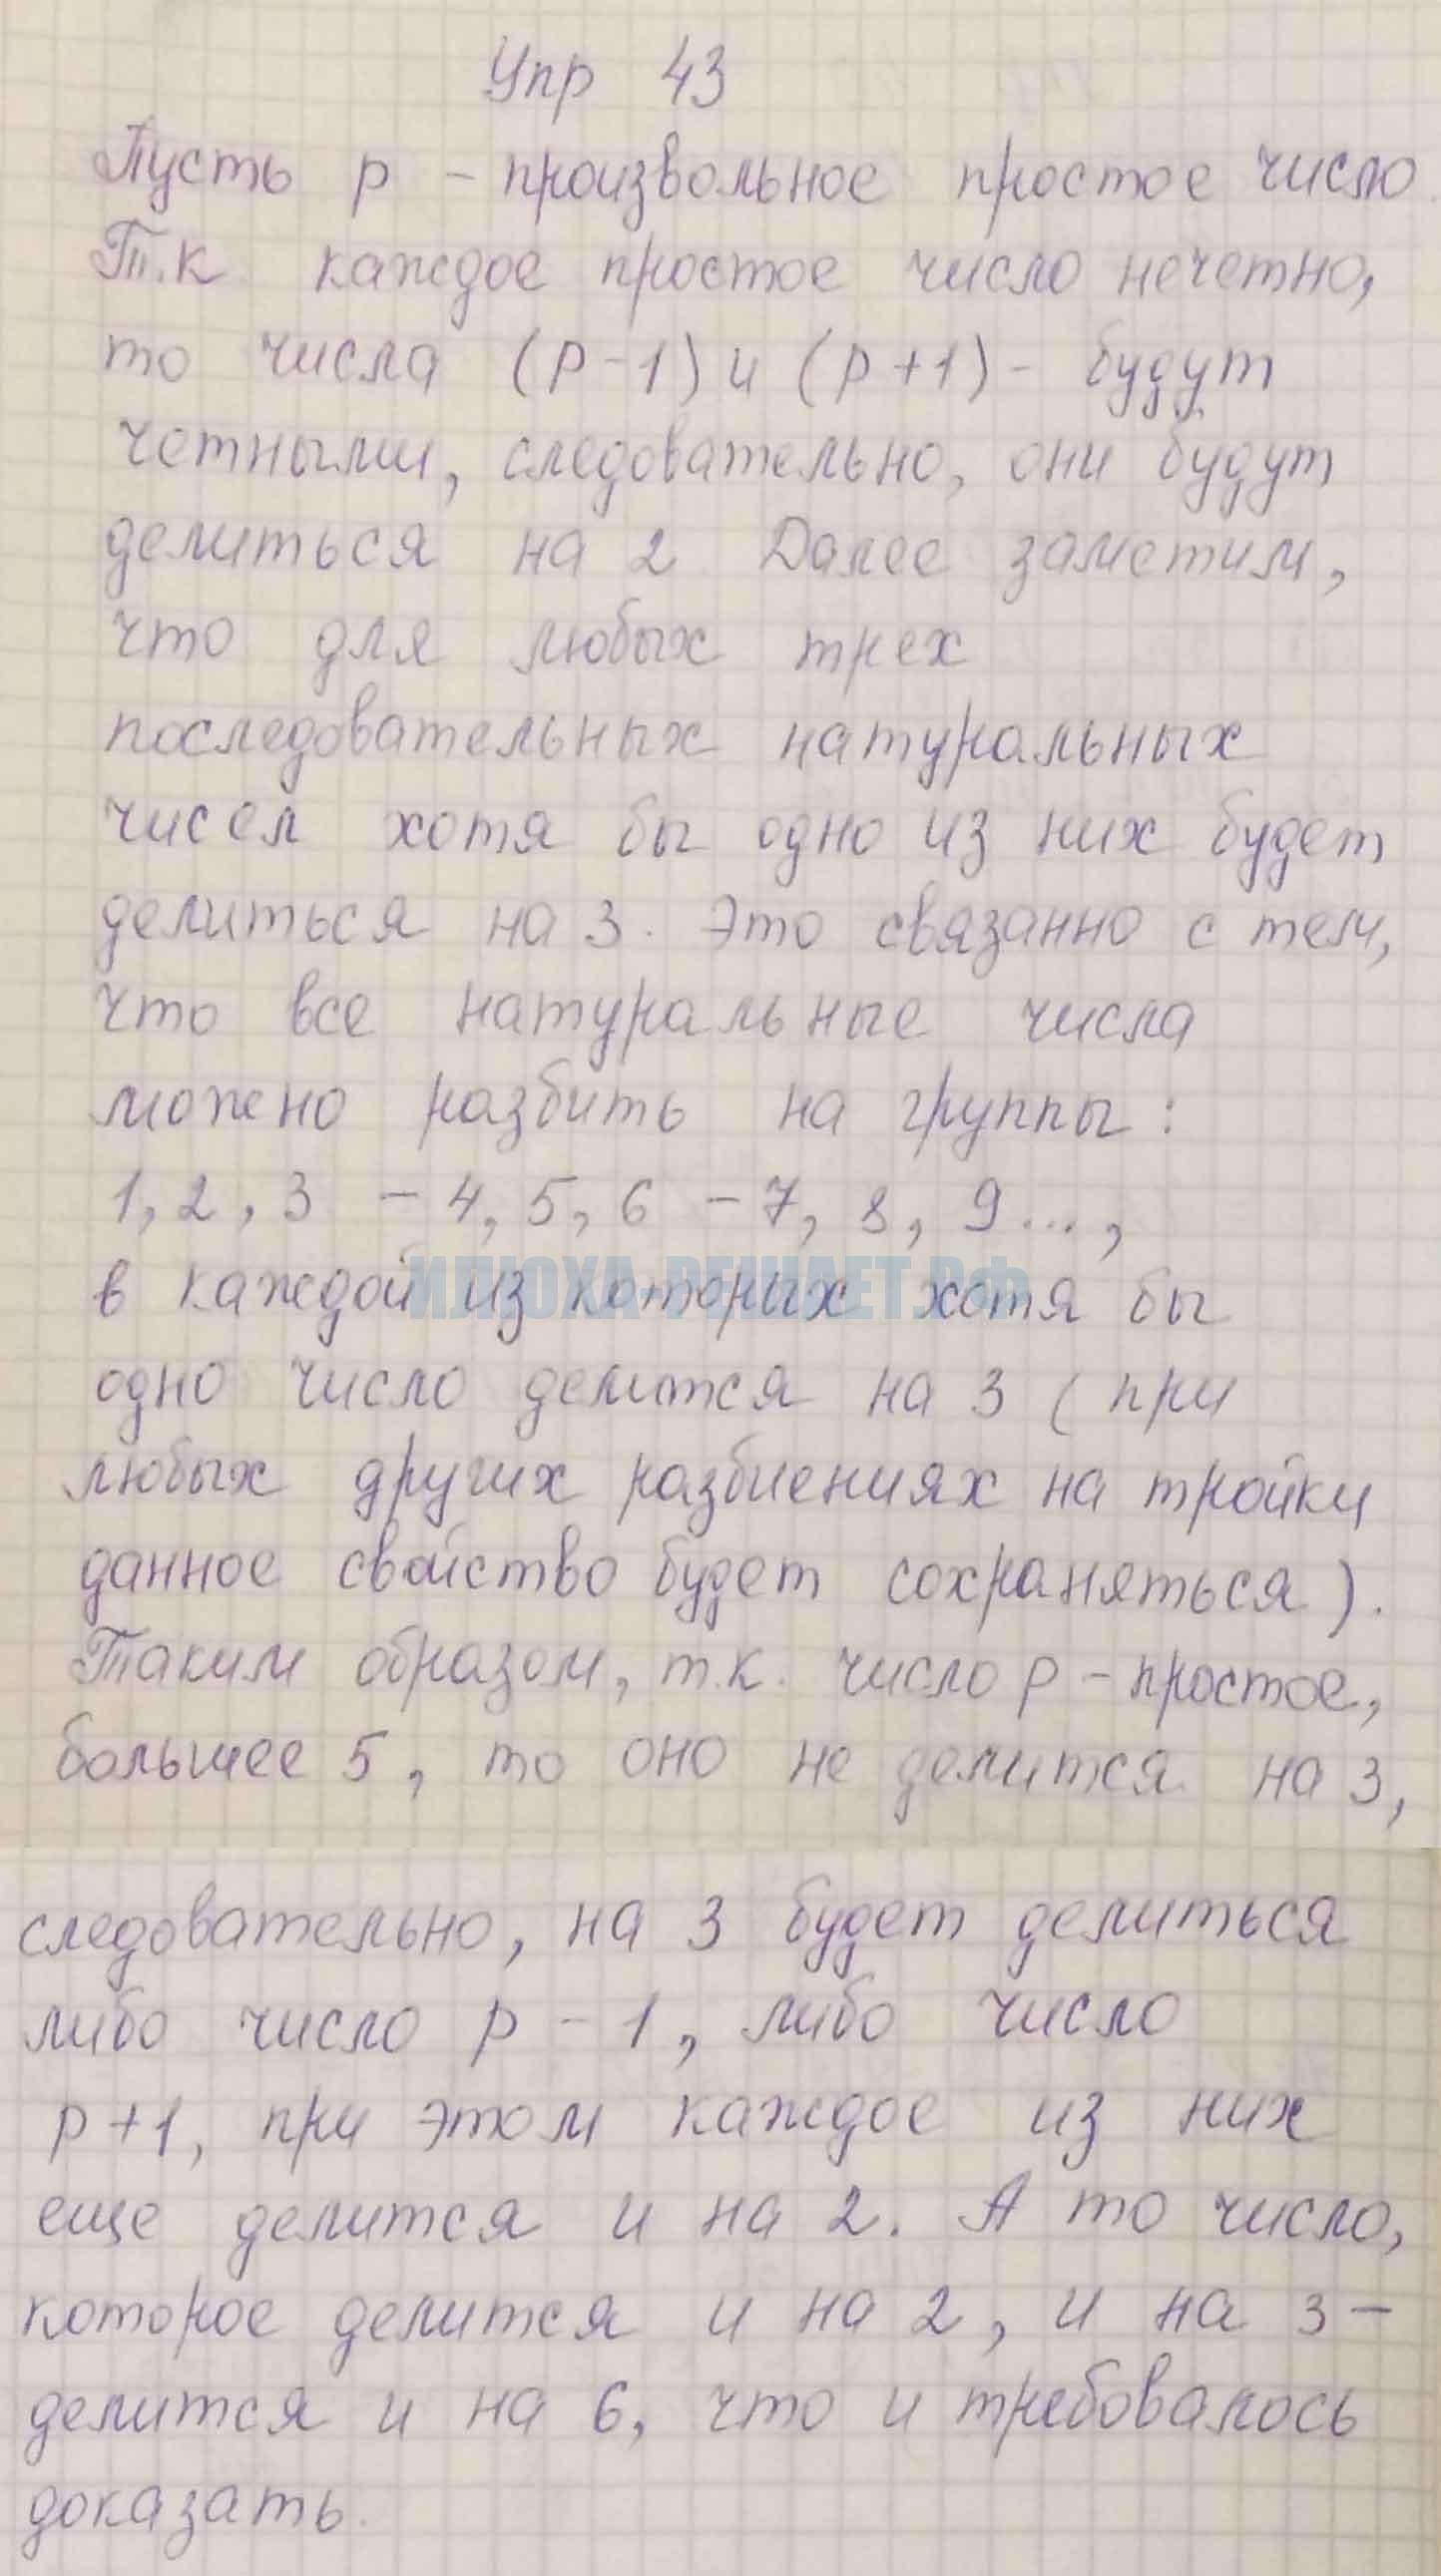 Упр 43
Пусть р - произвольное простое число.
Т.к каждое простое число нечетно,
то числа (р-1) и (р+1) - будут
четными, следовательно, они будут
делиться на 2 Далее заметим,
что для любых трех
последовательных натуральных
чисел хотя бы одно из них будет
делиться на 3. Это связанно с тем,
что все натуральные числа
можено разбить на группы:
1, 2, 3 - 4, 5, 6 - 7, 8, 9...,
ИЛЮХА-РЕШАЕТ.РФ
в каждой из которых хотя бы
одно число делится на 3 (при
любых других разбиениях на тройки
данное свойство будет сохраняться).
Таким образом, т.к. число р - простое,
большее 5, то оно не делится на 3,
следовательно, на 3 будет делиться
либо число р - 1, либо число
р+1, при этом каждое из них
еще делится и на 2. А то число,
которое делится и на 2, и на 3-
делится и на 6, что и требовалось
доказать.